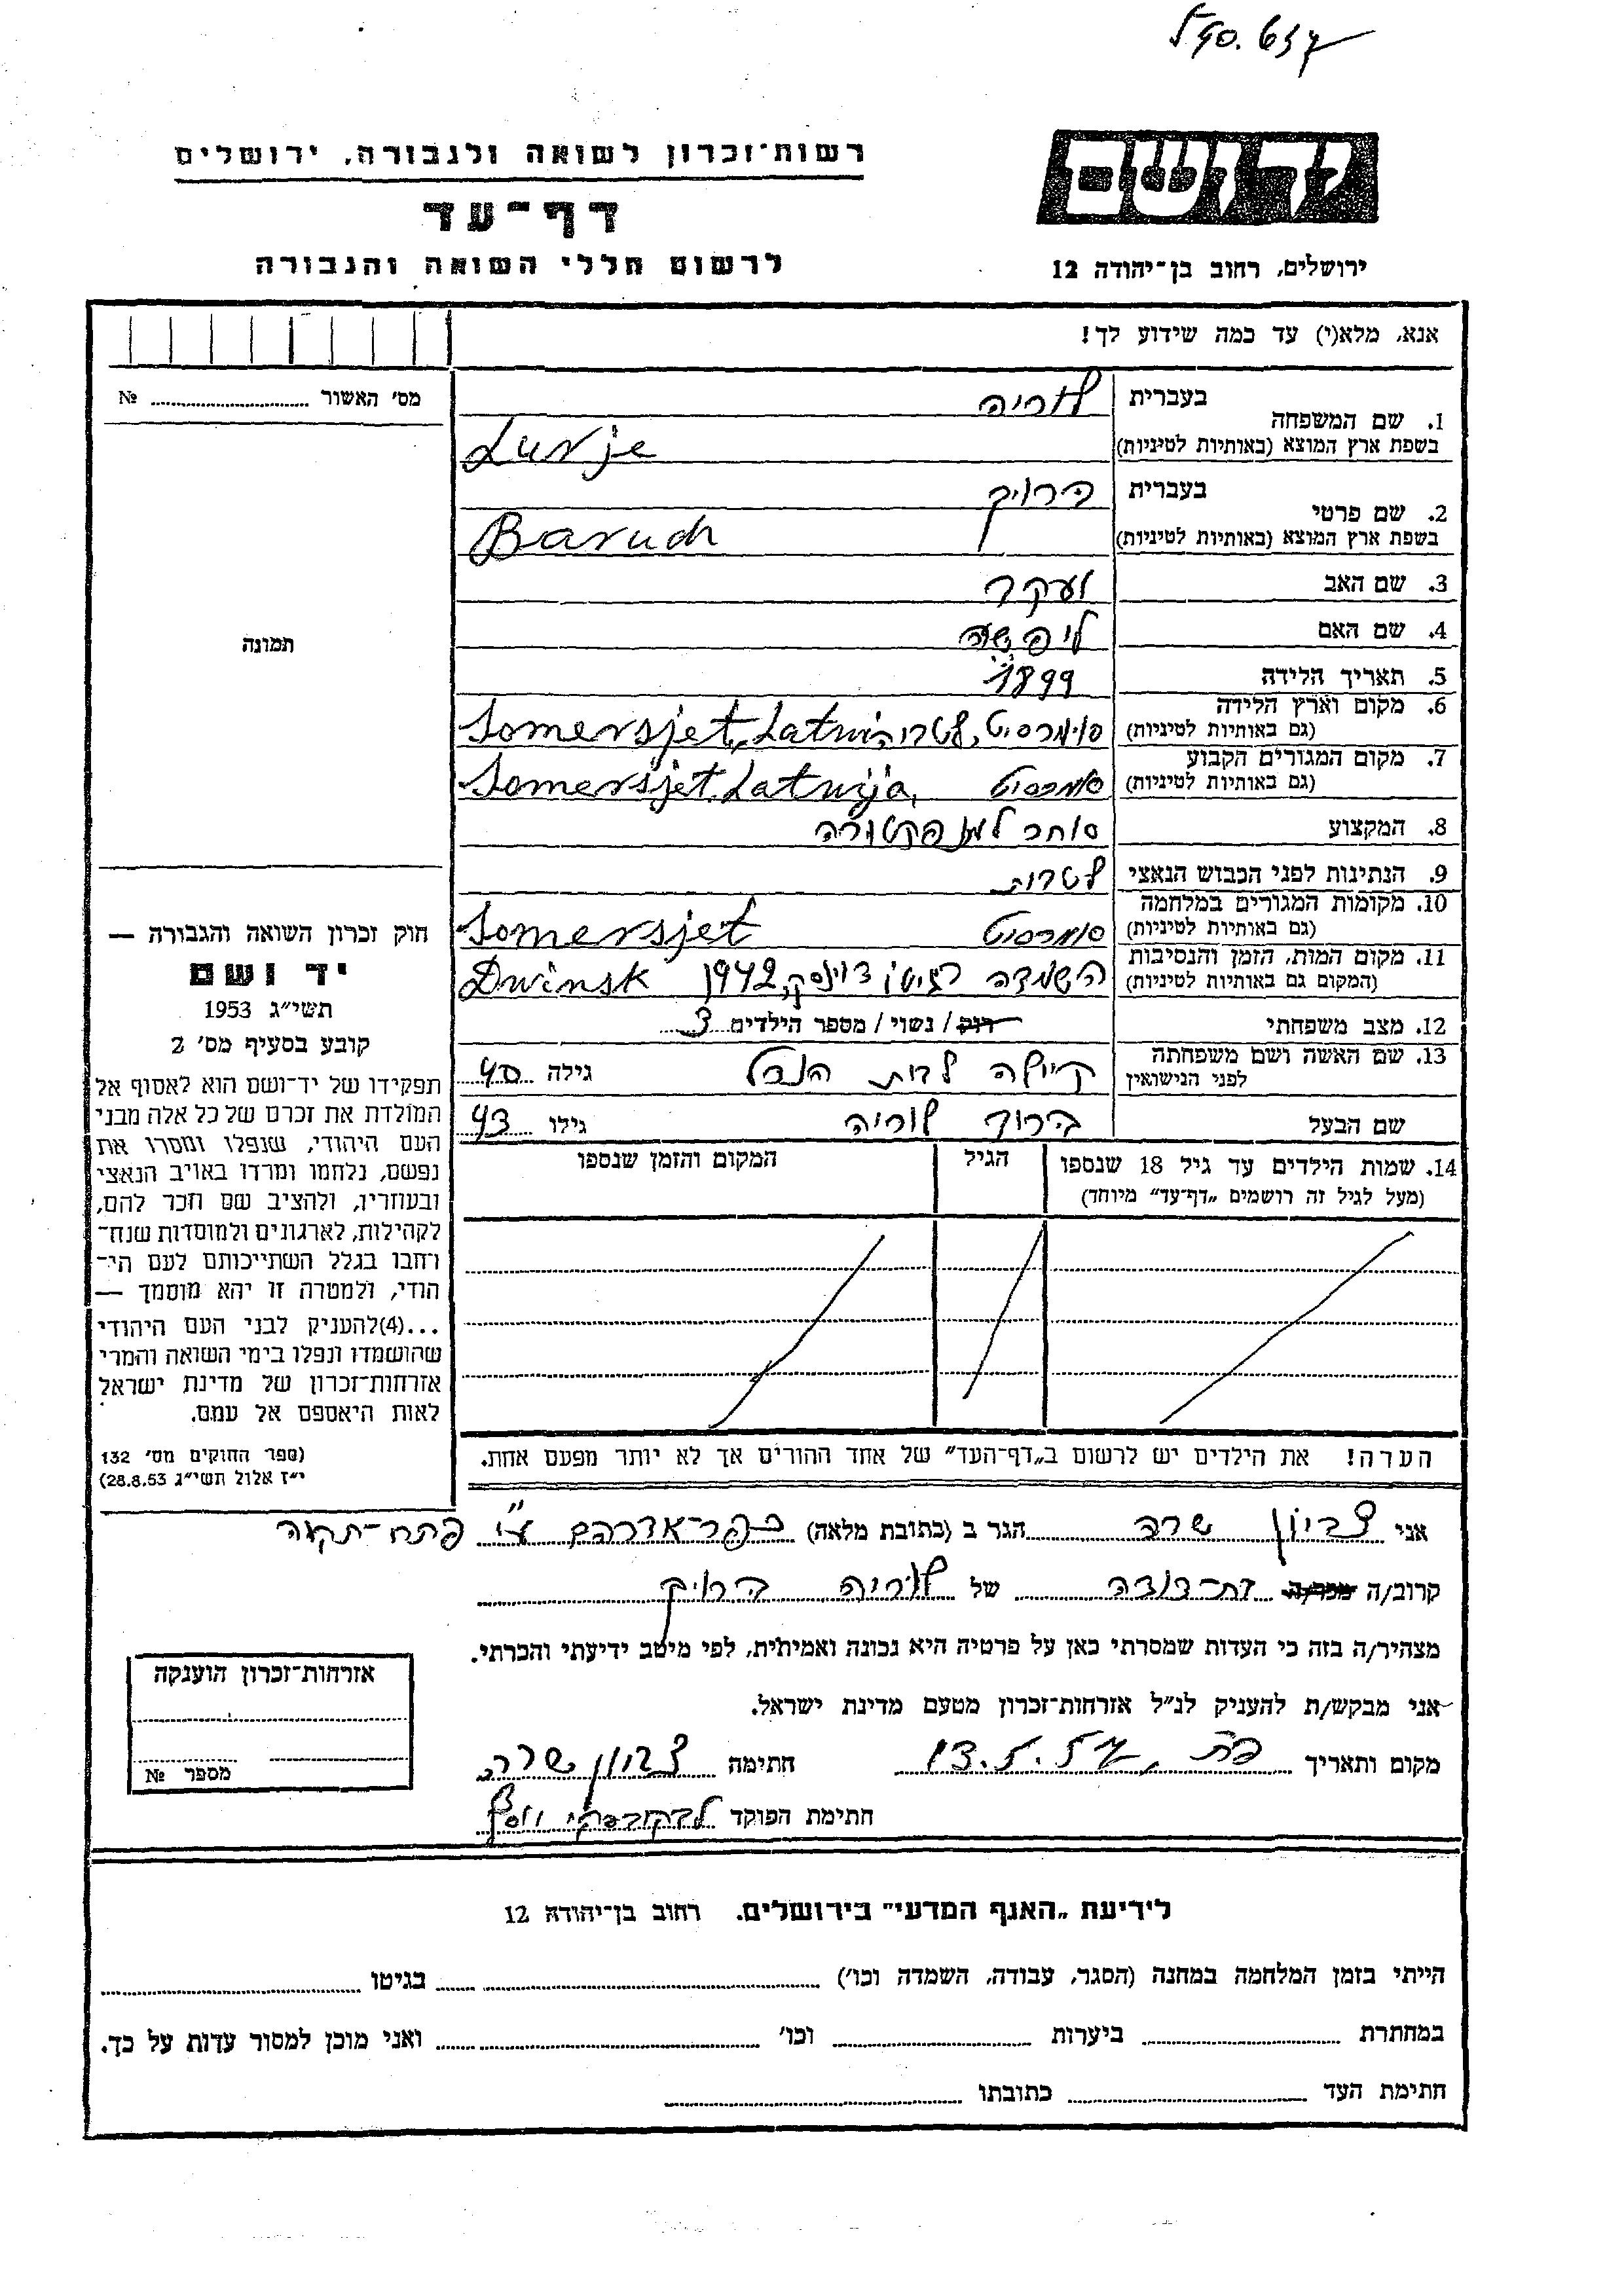 רשות־זכרון לשואה ולגבורה, ירושלים
דף־עד
לרשום חללי השואה והגבורה
יד ושם
ירושלים, רחוב בן־יהודה 12
אנא, מלא(י) עד כמה שידוע לך!
1. שם המשפחה בעברית לוריה
בשפת ארץ המוצא (באותיות לטיניות) Lurje
2. שם פרטי בעברית ברוך
בשפת ארץ המוצא (באותיות לטיניות) Baruch
3. שם האב יעקב
4. שם האם ליפשה
5. תאריך הלידה 1899
6. מקום וארץ הלידה
(גם באותיות לטיניות) Somersjet, Latvija
7. מקום המגורים הקבוע
(גם באותיות לטיניות) סומרסיט Somersjet, Latvija,
8. המקצוע סוחר למנופקטורה
9. הנתינות לפני הכבוש הנאצי לטבית
10. מקומות המגורים במלחמה
(גם באותיות לטיניות) סומרסיט Somersjet
11. מקום המות, הזמן והנסיבות
(המקום גם באותיות לטיניות) השמדה בגיטו דוינסק, 1942 Dwinsk
12. מצב משפחתי רווק / נשוי / מספר הילדים 3
13. שם האשה ושם משפחתה
לפני הנישואין לבית הנדל גילה 40
שם הבעל ברוך לוריה גילו 43
14. שמות הילדים עד גיל 18 שנספו הגיל המקום והזמן שנספו
(מעל לגיל זה רושמים „דף־עד” מיוחד)
הערה! את הילדים יש לרשום ב„דף־העד” של אחד ההורים אך לא יותר מפעם אחת.
מס' האשור №
תמונה
חוק זכרון השואה והגבורה —
יד ושם
תשי״ג 1953
קובע בסעיף מס' 2
תפקידו של יד־ושם הוא לאסוף אל
המולדת את זכרם של כל אלה מבני
העם היהודי, שנפלו ומסרו את
נפשם, נלחמו ומרדו באויב הנאצי
ובעוזריו, ולהציב שם וזכר להם,
לקהילות, לארגונים ולמוסדות שנח־
רבו בגלל השתייכותם לעם הי־
הודי, ולמטרה זו יהא מוסמך —
...(4)להעניק לבני העם היהודי
שהושמדו ונפלו בימי השואה והמרי
אזרחות־זכרון של מדינת ישראל
לאות היאספם אל עמם.
(ספר החוקים מס' 132
י״ז אלול תשי״ג 28.8.53)
אני צביון שרה הגר ב (כתובת מלאה) כפר־אברהם ע״י פתח־תקוה
קרוב/ה מכר/ה בת־דודה של לוריה ברוך
מצהיר/ה בזה כי העדות שמסרתי כאן על פרטיה היא נכונה ואמיתית, לפי מיטב ידיעתי והכרתי.
אני מבקש/ת להעניק לנ״ל אזרחות־זכרון מטעם מדינת ישראל.
מקום ותאריך חתימה צביון שרה
חתימת הפוקד
אזרחות־זכרון הוענקה
מספר №
לידיעת „האגף המדעי” בירושלים. רחוב בן־יהודה 12
הייתי בזמן המלחמה במחנה (הסגר, עבודה, השמדה וכו') בגיטו
במחתרת ביערות וכו' ואני מוכן למסור עדות על כך.
חתימת העד כתובתו